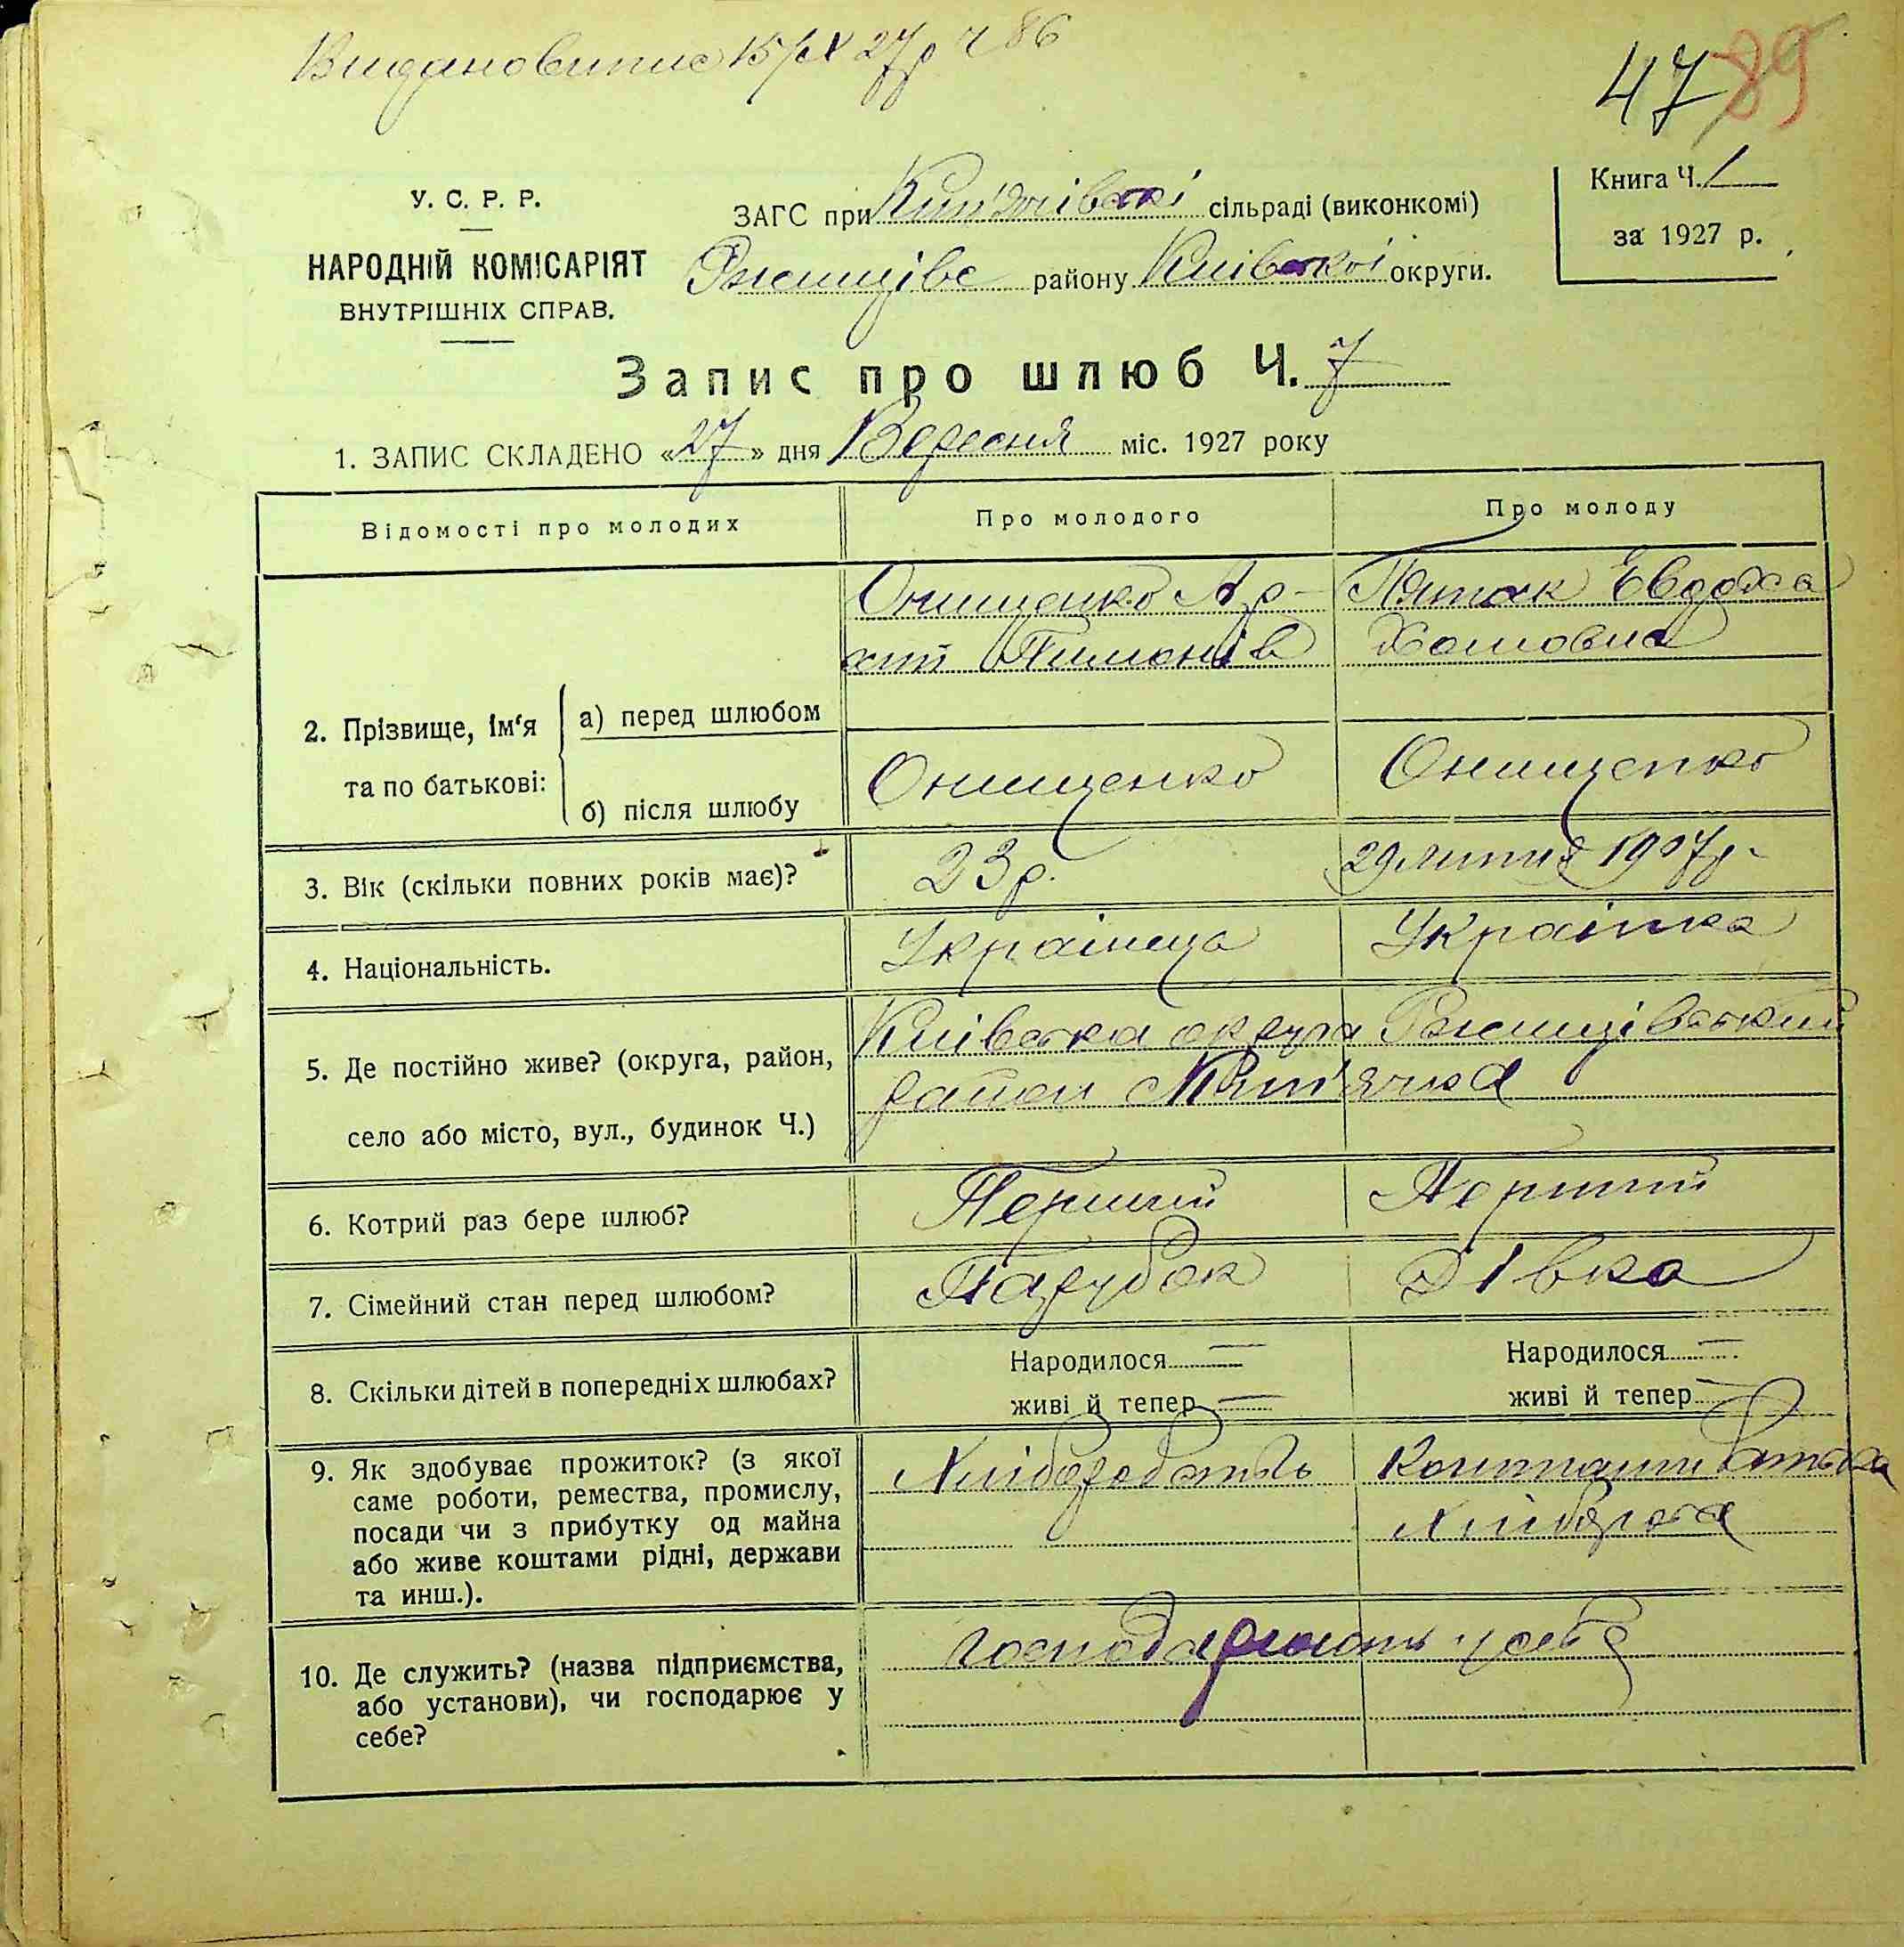 Видано випис 15/IX 27 р Ч 86
47 89
У. С. Р. Р.
НАРОДНІЙ КОМІСАРІЯТ
ВНУТРІШНІХ СПРАВ.
ЗАГС при сільраді (виконкомі)
Ржищівс району Київської округи.
Книга Ч. 1
за 1927 р.
Запис про шлюб Ч. 7
1. ЗАПИС СКЛАДЕНО «27» дня Вересня міс. 1927 року
Відомості про молодих Про молодого Про молоду
2. Прізвище, ім'я та по батькові:
а) перед шлюбом
Онищенко
Пятак Евдоха
Хомовна
б) після шлюбу
Онищенко Онищенко
3. Вік (скільки повних років має)? 23 р. 29 липня 1907 р.
4. Національність. Українец Українка
5. Де постійно живе? (округа, район,
село або місто, вул., будинок Ч.)
Київська округа Ржищівський
район
6. Котрий раз бере шлюб? Перший Перший
7. Сімейний стан перед шлюбом? Парубок Дівка
8. Скільки дітей в попередніх шлюбах?
Народилося — Народилося —
живі й тепер — живі й тепер —
9. Як здобуває прожиток? (з якої
саме роботи, ремества, промислу,
посади чи з прибутку од майна
або живе коштами рідні, держави
та инш.).
Хліборобством
Коштами батька
хлібороба
10. Де служить? (назва підприємства,
або установи), чи господарює у
себе?
господарюють у себе